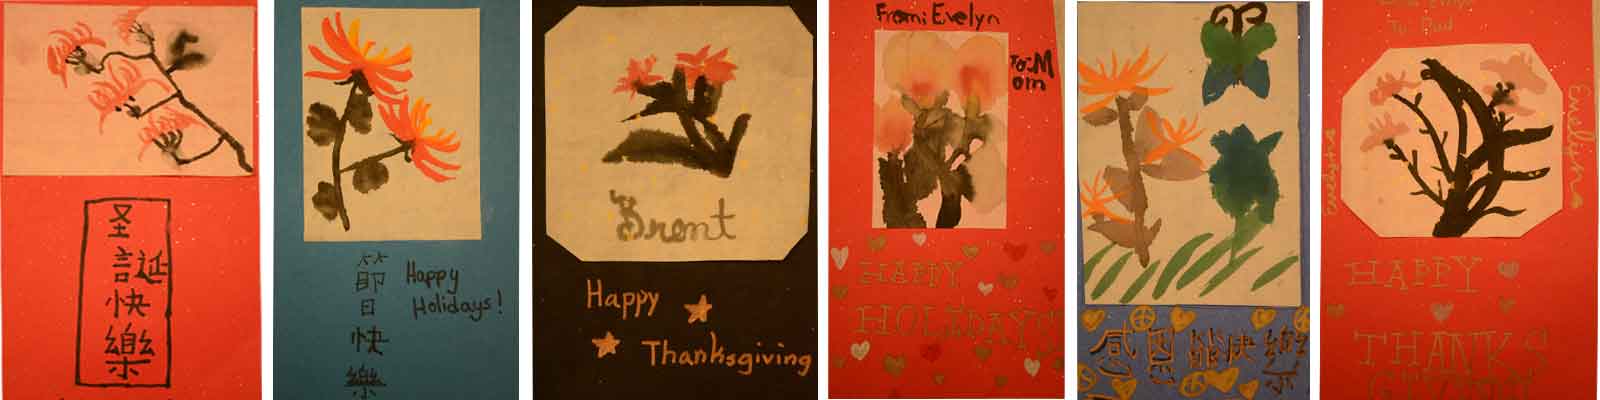 圣誕快樂
節日快樂
Happy
Holidays!
Brent
Happy
Thanksgiving
From: Evelyn
To: M
om
HAPPY
HOLIDAYS
感恩節快樂
To: Dad
Evelyn
HAPPY
THANKS